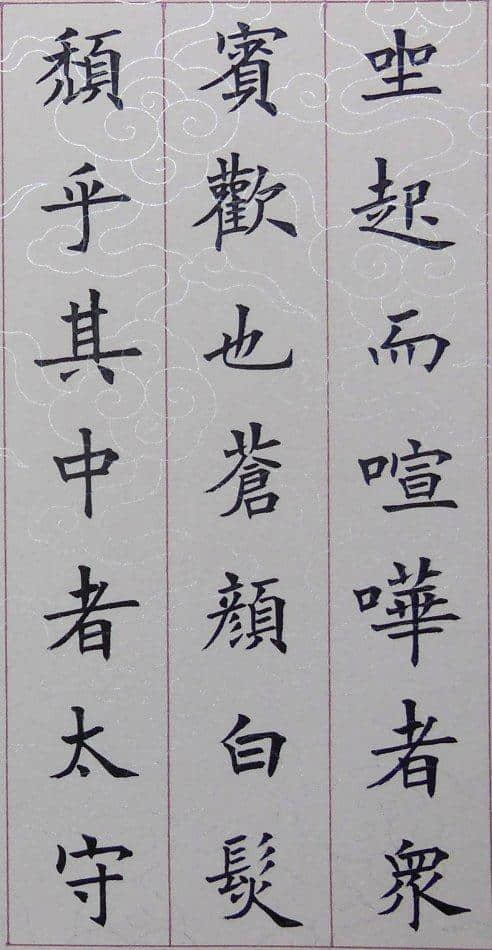 坐起而喧嘩者眾
賓歡也蒼顏白髮
頹乎其中者太守